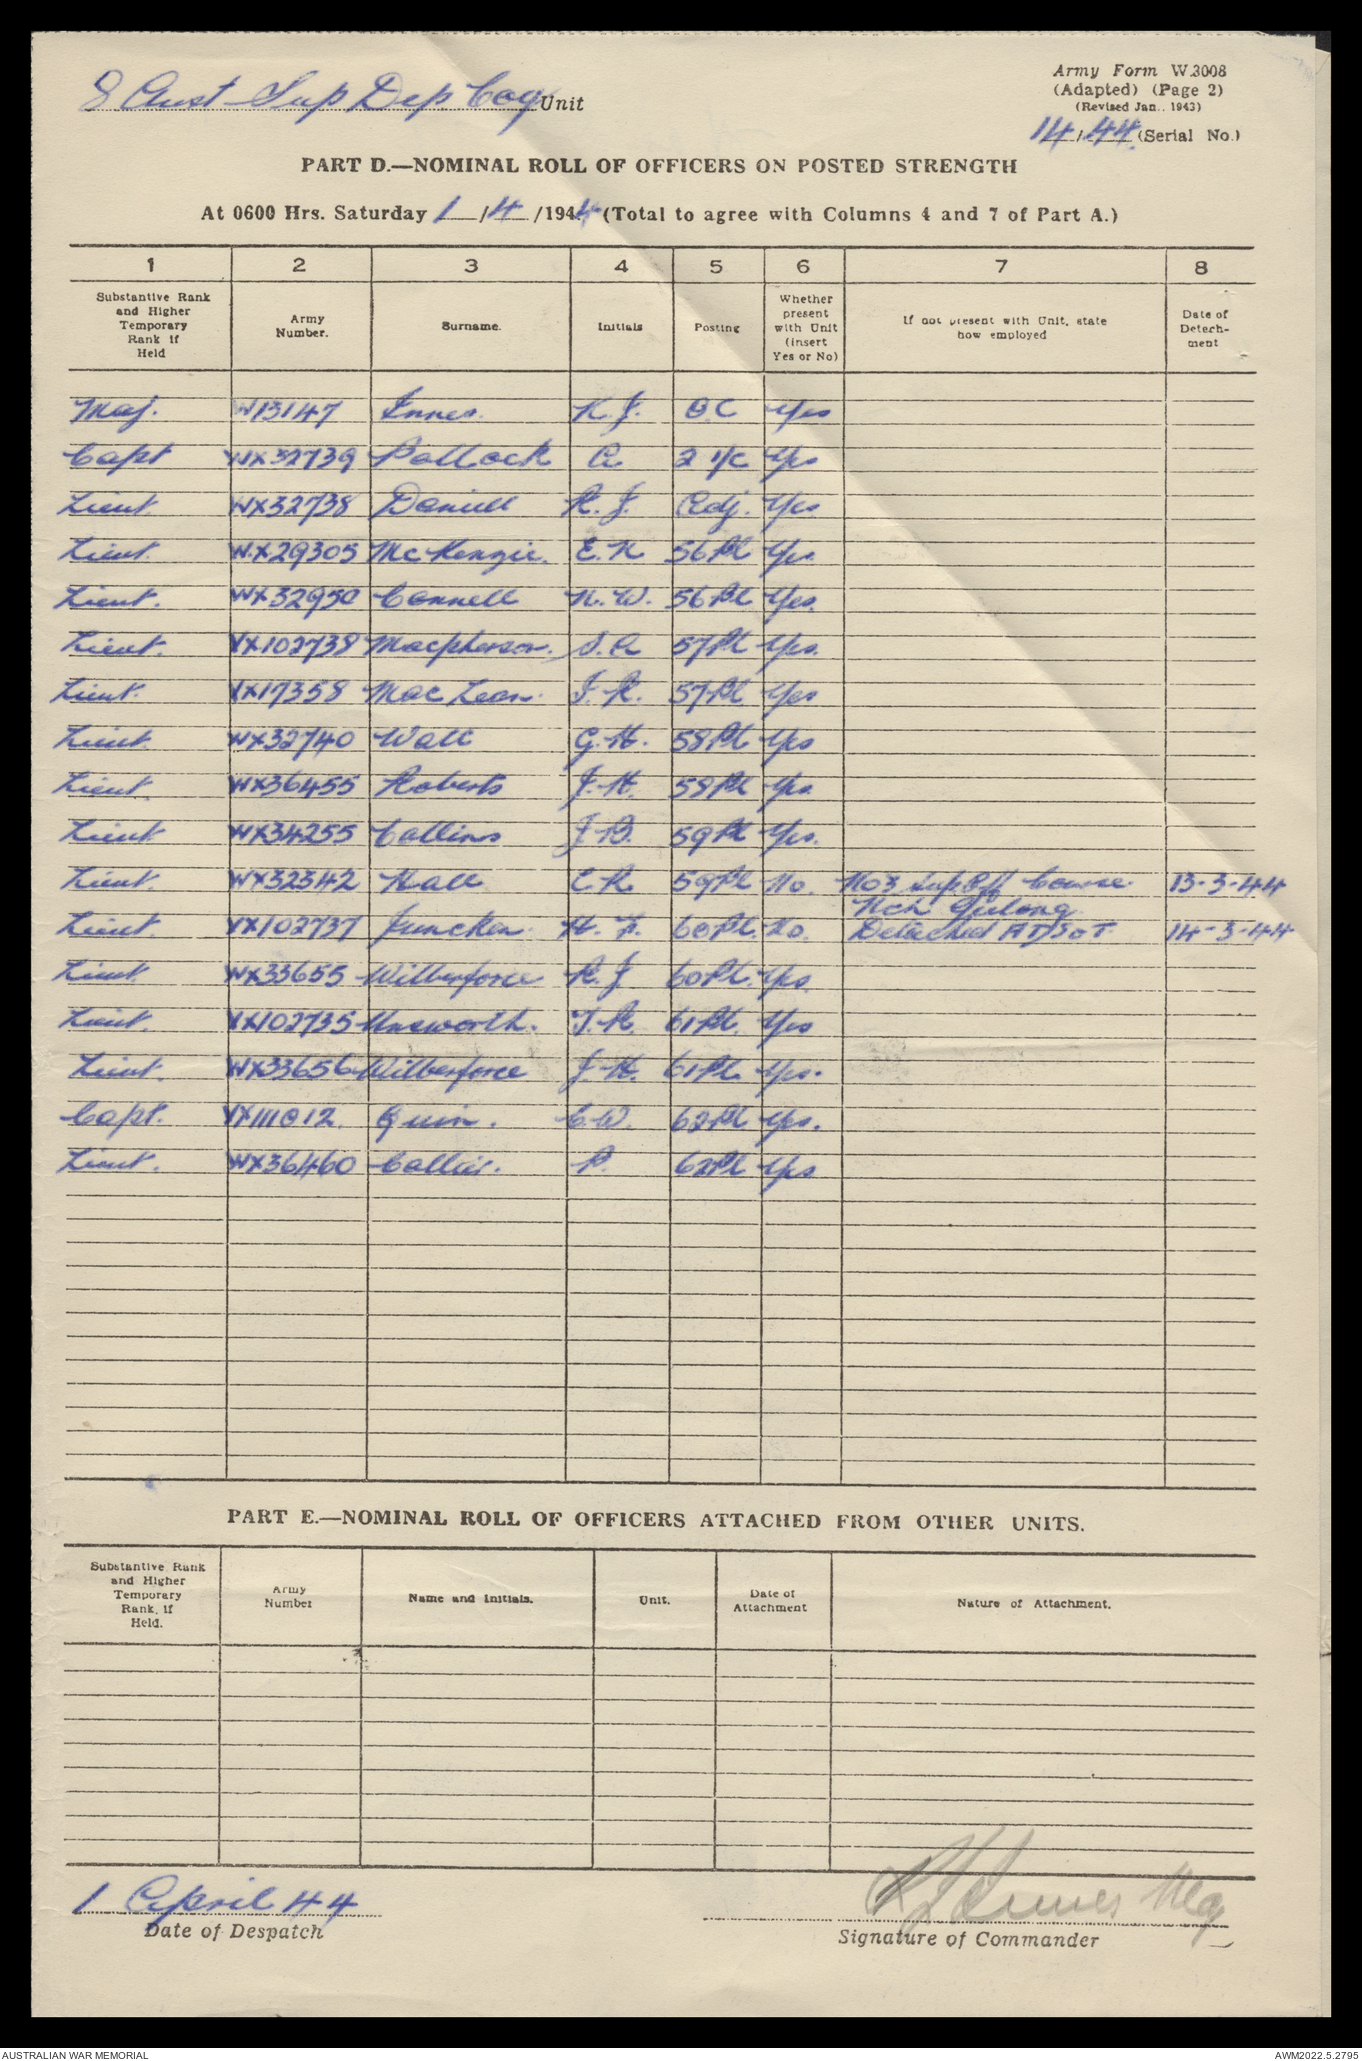 8 Aust Sup Dep Coy Unit
Army Form W.3008
(Adapted) (Page 2)
(Revised Jan., 1943)
14/44. (Serial No.)
PART D.—NOMINAL ROLL OF OFFICERS ON POSTED STRENGTH
At 0600 Hrs. Saturday 1/4/1944 (Total to agree with Columns 4 and 7 of Part A.)
1 2 3 4 5 6 7 8
Substantive Rank and Higher Temporary Rank if Held
Army Number.
Surname.
Initials
Posting
Whether present with Unit (insert Yes or No)
If not present with Unit, state how employed
Date of Detachment
Maj. W13147 Innes. K. J. O.C Yes
Capt WX32739 Pollock A 2 i/c Yes
Lieut. WX32738 Daniell R. J. Adj. Yes
Lieut. WX29305 McKenzie. E. K 56 Pl Yes.
Lieut. WX32950 Connell N. W. 56 Pl Yes.
Lieut. VX102738 Macpherson. S. A 57 Pl Yes.
Lieut. VX17358 MacLean. I. R. 57 Pl Yes
Lieut. WX32740 Wall G. H. 58 Pl Yes
Lieut. WX36455 Roberts J. H. 58 Pl Yes.
Lieut. WX34255 Collins J. B. 59 Pl Yes.
Lieut. WX32342 Hall C. R. 59 Pl No. No 3 Sup Off Course. 13-3-44
Geelong
Lieut. VX102737 Juncken. H. F. 60 Pl. No. Detached 14-3-44
Lieut. WX33655 Wilberforce R. J 60 Pl. Yes.
Lieut. VX102735 Unsworth. T. R. 61 Pl. Yes
Lieut. WX33656 Wilberforce J. H. 61 Pl. Yes.
Capt. VX111012. Quin. C. W. 62 Pl Yes.
Lieut. WX36460 Collier. P. 62 Pl Yes
PART E.—NOMINAL ROLL OF OFFICERS ATTACHED FROM OTHER UNITS.
Substantive Rank and Higher Temporary Rank, if Held.
Army Number
Name and Initials.
Unit.
Date of Attachment
Nature of Attachment.
1 April 44
Date of Despatch
K J Innes Maj
Signature of Commander
AUSTRALIAN WAR MEMORIAL
AWM2022.5.2795